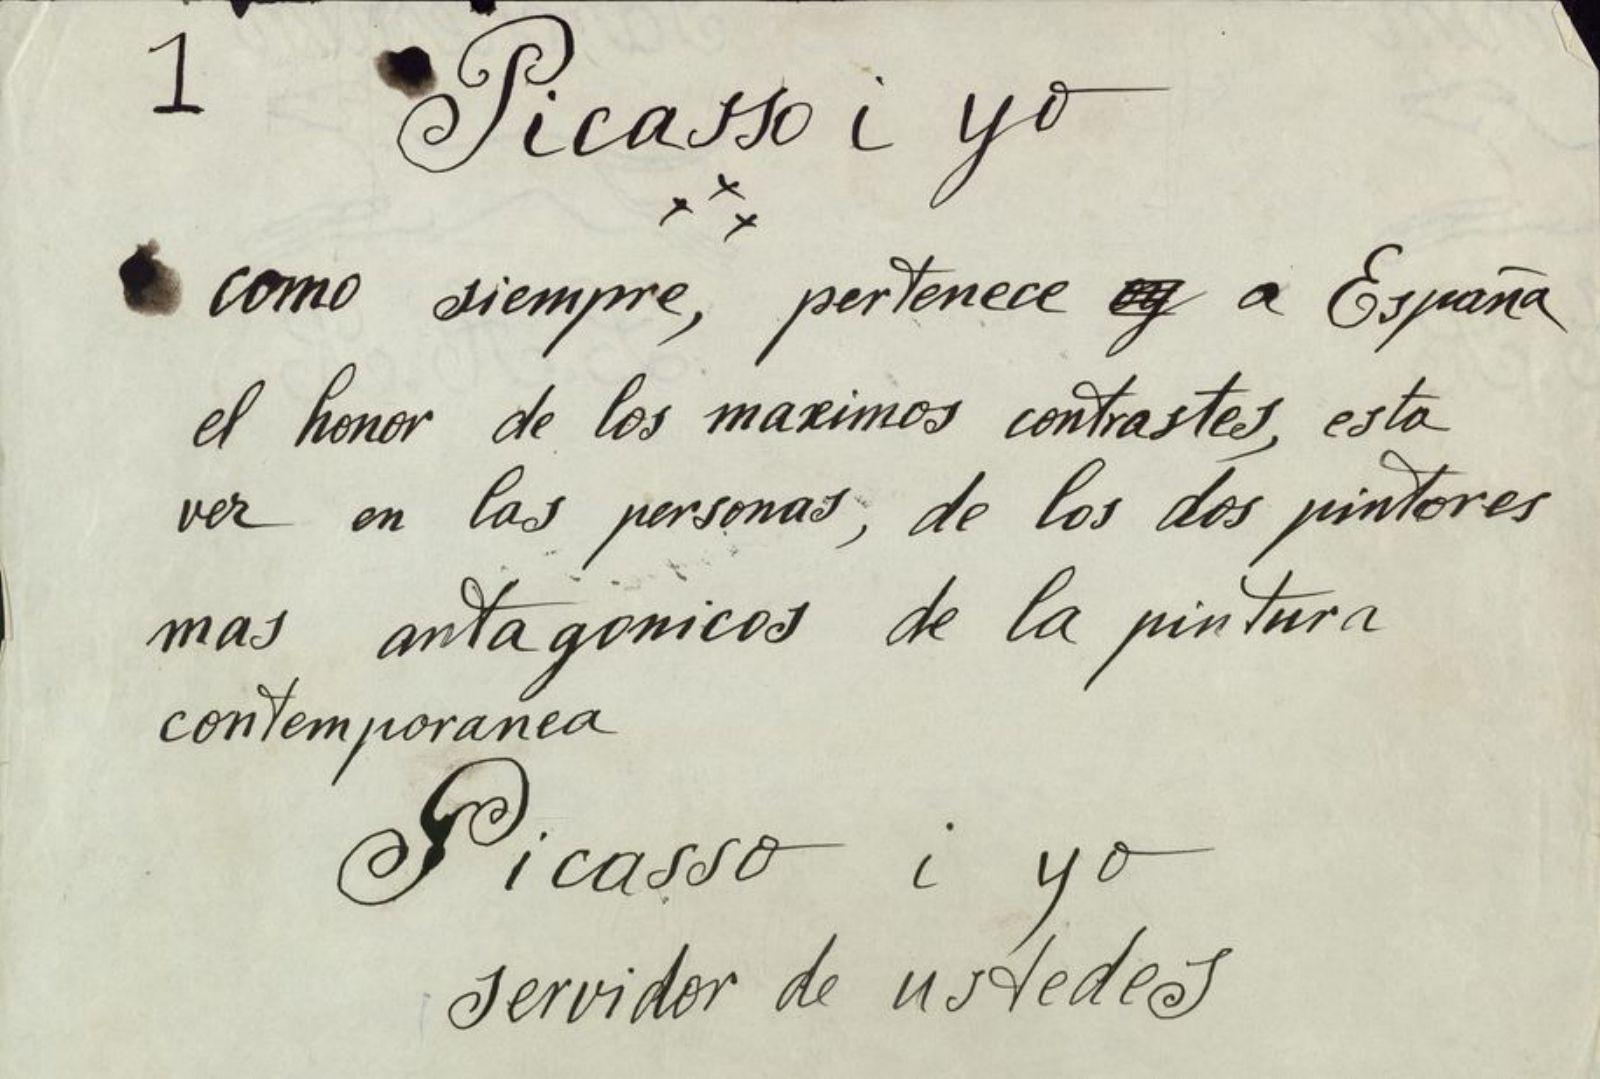 1
Picasso i yo
como siempre, pertenece a España
el honor de los maximos contrastes, esta
vez en las personas, de los dos pintores
mas antagonicos de la pintura
contemporanea
Picasso i yo
servidor de ustedes